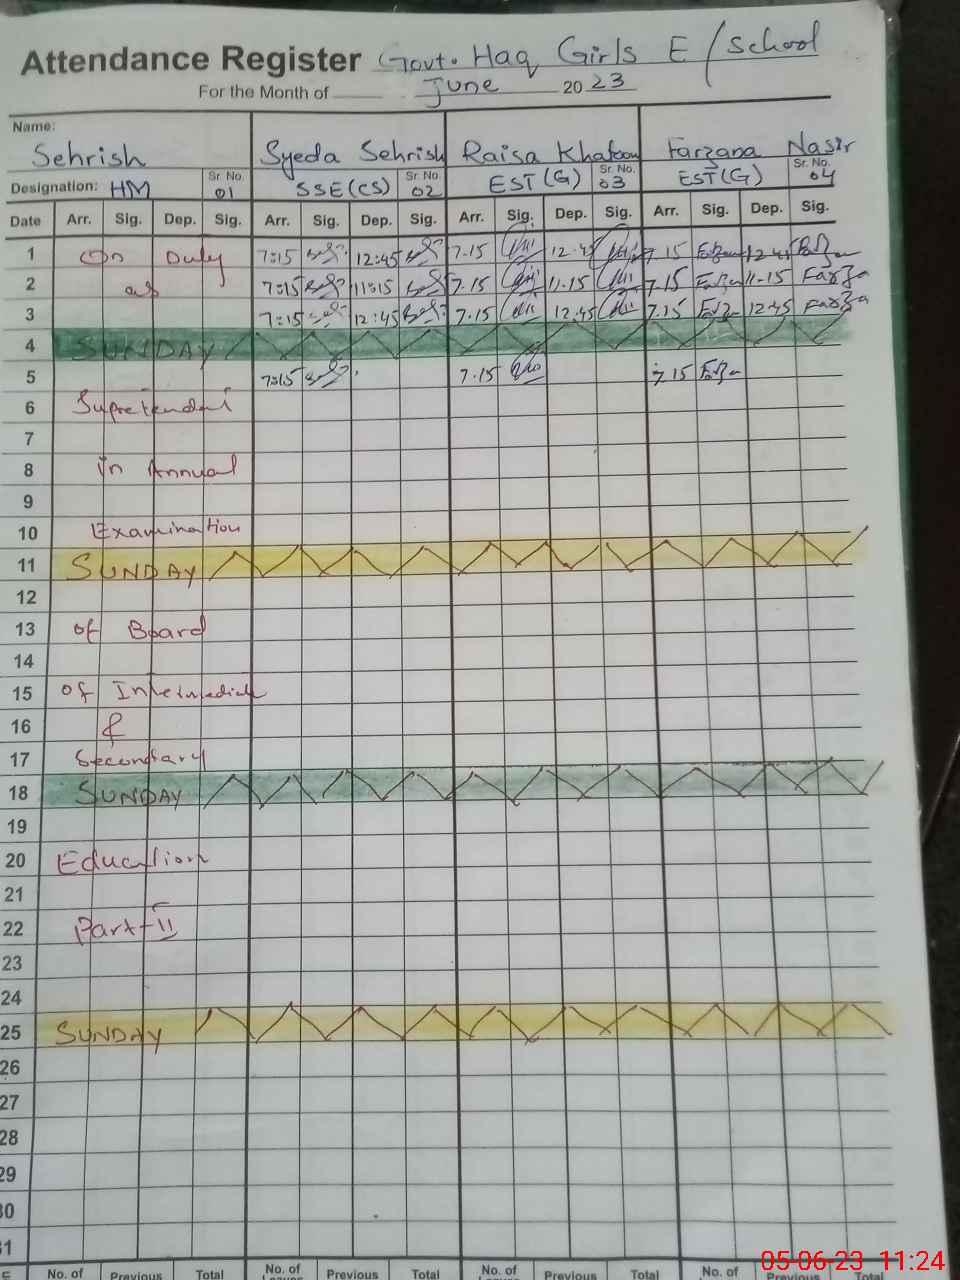 Attendance Register Govt. Haq Girls E / School
For the Month of June 2023
Name:
Sehrish Syeda Sehrish Raisa Khatoon Farzana Nasir
Designation: HM Sr. No. 01 SSE(CS) Sr. No. 02 EST(G) Sr. No. 03 EST(G) Sr. No. 04
Date Arr. Sig. Dep. Sig. Arr. Sig. Dep. Sig. Arr. Sig. Dep. Sig. Arr. Sig. Dep. Sig.
1 On Duty 7:15 12:45 7.15 12.45 7.15 12.45
2 as 7:15 11:15 7.15 11.15 7.15 11-15 Farza
3 7:15 12:45 7.15 12.45 7.15 12.45 Farza
4 SUNDAY
5 7:15 7.15 7.15
6 Supretendent
7
8 in Annual
9
10 Examination
11 SUNDAY
12
13 of Board
14
15 of Intermediate
16 &
17 Secondary
18 SUNDAY
19
20 Education
21
22 Part-II
23
24
25 SUNDAY
26
27
28
29
30
31
No. of Previous Total No. of Previous Total No. of Previous Total No. of Previous Total
05-06-23 11:24